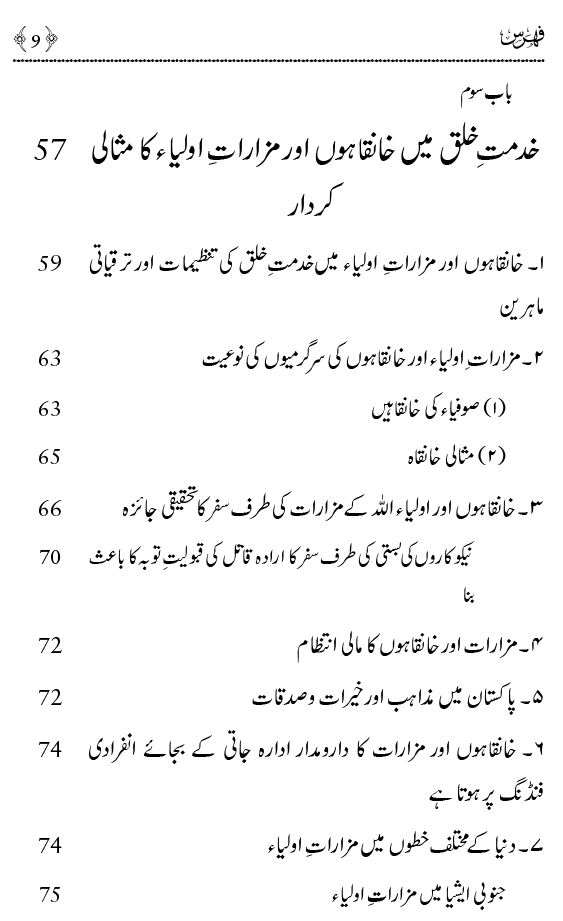 فہرس ﴿9﴾
باب سوم
خدمتِ خلق میں خانقاہوں اور مزاراتِ اولیاء کا مثالی 57
کردار
۱۔ خانقاہوں اور مزاراتِ اولیاء میں خدمتِ خلق کی تنظیمات اور ترقیاتی 59
ماہرین
۲۔ مزاراتِ اولیاء اور خانقاہوں کی سرگرمیوں کی نوعیت 63
(۱) صوفیاء کی خانقاہیں 63
(۲) مثالی خانقاہ 65
۳۔ خانقاہوں اور اولیاء اللہ کے مزارات کی طرف سفر کا تحقیقی جائزہ 66
نیکوکاروں کی بستی کی طرف سفر کا ارادہ قاتل کی قبولیتِ توبہ کا باعث 70
بنا
۴۔ مزارات اور خانقاہوں کا مالی انتظام 72
۵۔ پاکستان میں مذاہب اور خیرات و صدقات 72
۶۔ خانقاہوں اور مزارات کا دارومدار ادارہ جاتی کے بجائے انفرادی 74
فنڈنگ پر ہوتا ہے
۷۔ دنیا کے مختلف خطوں میں مزاراتِ اولیاء 74
جنوبی ایشیا میں مزاراتِ اولیاء 75